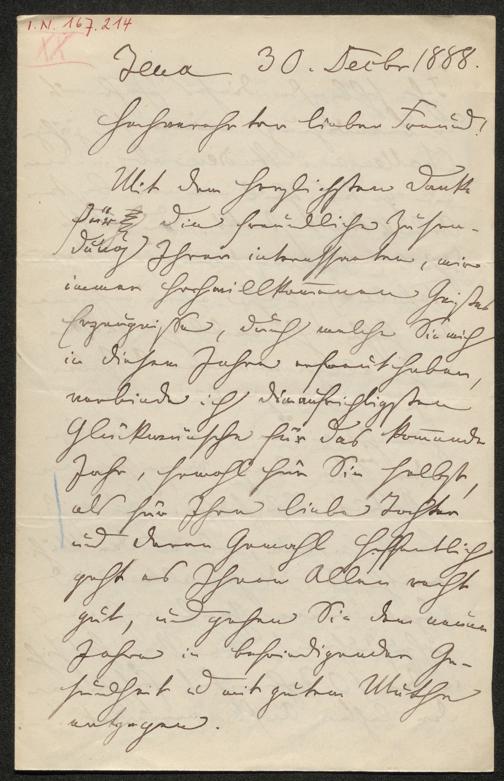 I.N. 167.214
XX
Jena 30. Decbr 1888.
Hochverehrter lieber Freund!
Mit dem herzlichsten Danke
für die freundliche Zusen-
dung Ihrer interessanten, mir
immer hochwillkom̄enen Geistes
Erzeugnisse, durch welche Sie mich
in diesem Jahre erfreut haben,
verbinde ich die aufrichtigsten
Glückwünsche für das kom̄ende
Jahr, sowohl für Sie selbst,
als für Ihre liebe Tochter
und deren Gemahl. Hoffentlich
geht es Ihnen Allen recht
gut, und gehen Sie dem neuen
Jahre in befriedigender Ge-
sundheit u mit gutem Muthe
entgegen.